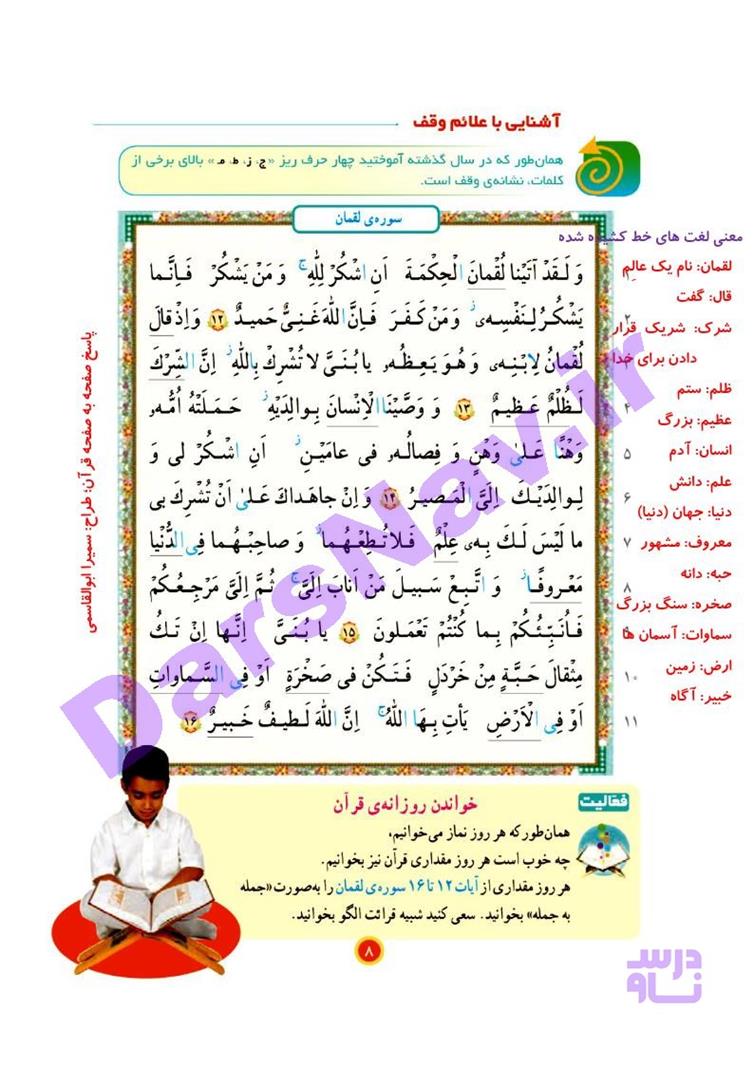 آشنایی با علائم وقف
همان‌طور که در سال گذشته آموختید چهار حرف ریز «ج، ز، ط، مـ» بالای برخی از
کلمات، نشانه‌ی وقف است.
سوره‌ی لقمان
معنی لغت های خط کشیده شده
وَ لَقَدْ آتَیْنا لُقْمانَ الْحِکْمَةَ اَنِ اشْکُرْ لِلّٰهِ ۚ وَ مَنْ یَشْکُرْ فَاِنَّما
یَشْکُرُ لِنَفْسِهٖ ز وَ مَنْ کَفَرَ فَاِنَّ اللّٰهَ غَنِیٌّ حَمیدٌ ۱۲ وَ اِذْ قالَ
لُقْمانُ لِابْنِهٖ وَ هُوَ یَعِظُهٗ یا بُنَیَّ لا تُشْرِكْ بِاللّٰهِ ز اِنَّ الشِّرْكَ
لَظُلْمٌ عَظیمٌ ۱۳ وَ وَصَّیْنَا الْاِنْسانَ بِوالِدَیْهِ ز حَمَلَتْهُ اُمُّهٗ
وَهْنًا عَلیٰ وَهْنٍ وَ فِصالُهٗ فی عامَیْنِ ز اَنِ اشْکُرْ لی وَ
لِوالِدَیْكَ اِلَیَّ الْمَصیرُ ۱۴ وَ اِنْ جاهَداكَ عَلیٰ اَنْ تُشْرِكَ بی
ما لَیْسَ لَكَ بِهٖ عِلْمٌ فَلا تُطِعْهُما ز وَ صاحِبْهُما فِی الدُّنْیا
مَعْروفًا ز وَ اتَّبِعْ سَبیلَ مَنْ اَنابَ اِلَیَّ ۚ ثُمَّ اِلَیَّ مَرْجِعُکُمْ
فَاُنَبِّئُکُمْ بِما کُنْتُمْ تَعْمَلونَ ۱۵ یا بُنَیَّ اِنَّها اِنْ تَكُ
مِثْقالَ حَبَّةٍ مِنْ خَرْدَلٍ فَتَکُنْ فی صَخْرَةٍ اَوْ فِی السَّماواتِ
اَوْ فِی الْاَرْضِ یَأْتِ بِهَا اللّٰهُ ۚ اِنَّ اللّٰهَ لَطیفٌ خَبیرٌ ۱۶
لقمان: نام یک عالِم
قال: گفت
۲
شرک: شریک قرار
دادن برای خدا
ظلم: ستم
۴
عظیم: بزرگ
انسان: آدم
۵
علم: دانش
۶
دنیا: جهان (دنیا)
معروف: مشهور
۷
حبه: دانه
۸
صخره: سنگ بزرگ
سماوات: آسمان ها
ارض: زمین
۱۰
خبیر: آگاه
۱۱
پاسخ صفحه به صفحه قرآن: طراح: سمیرا ابوالقاسمی
DarsNav.ir
فعّالیت
خواندن روزانه‌ی قرآن
همان‌طورکه هر روز نماز می‌خوانیم،
چه خوب است هر روز مقداری قرآن نیز بخوانیم.
هر روز مقداری از آیات ۱۲ تا ۱۶ سوره‌ی لقمان را به‌صورت «جمله
به جمله» بخوانید. سعی کنید شبیه قرائت الگو بخوانید.
۸
درس
ناو